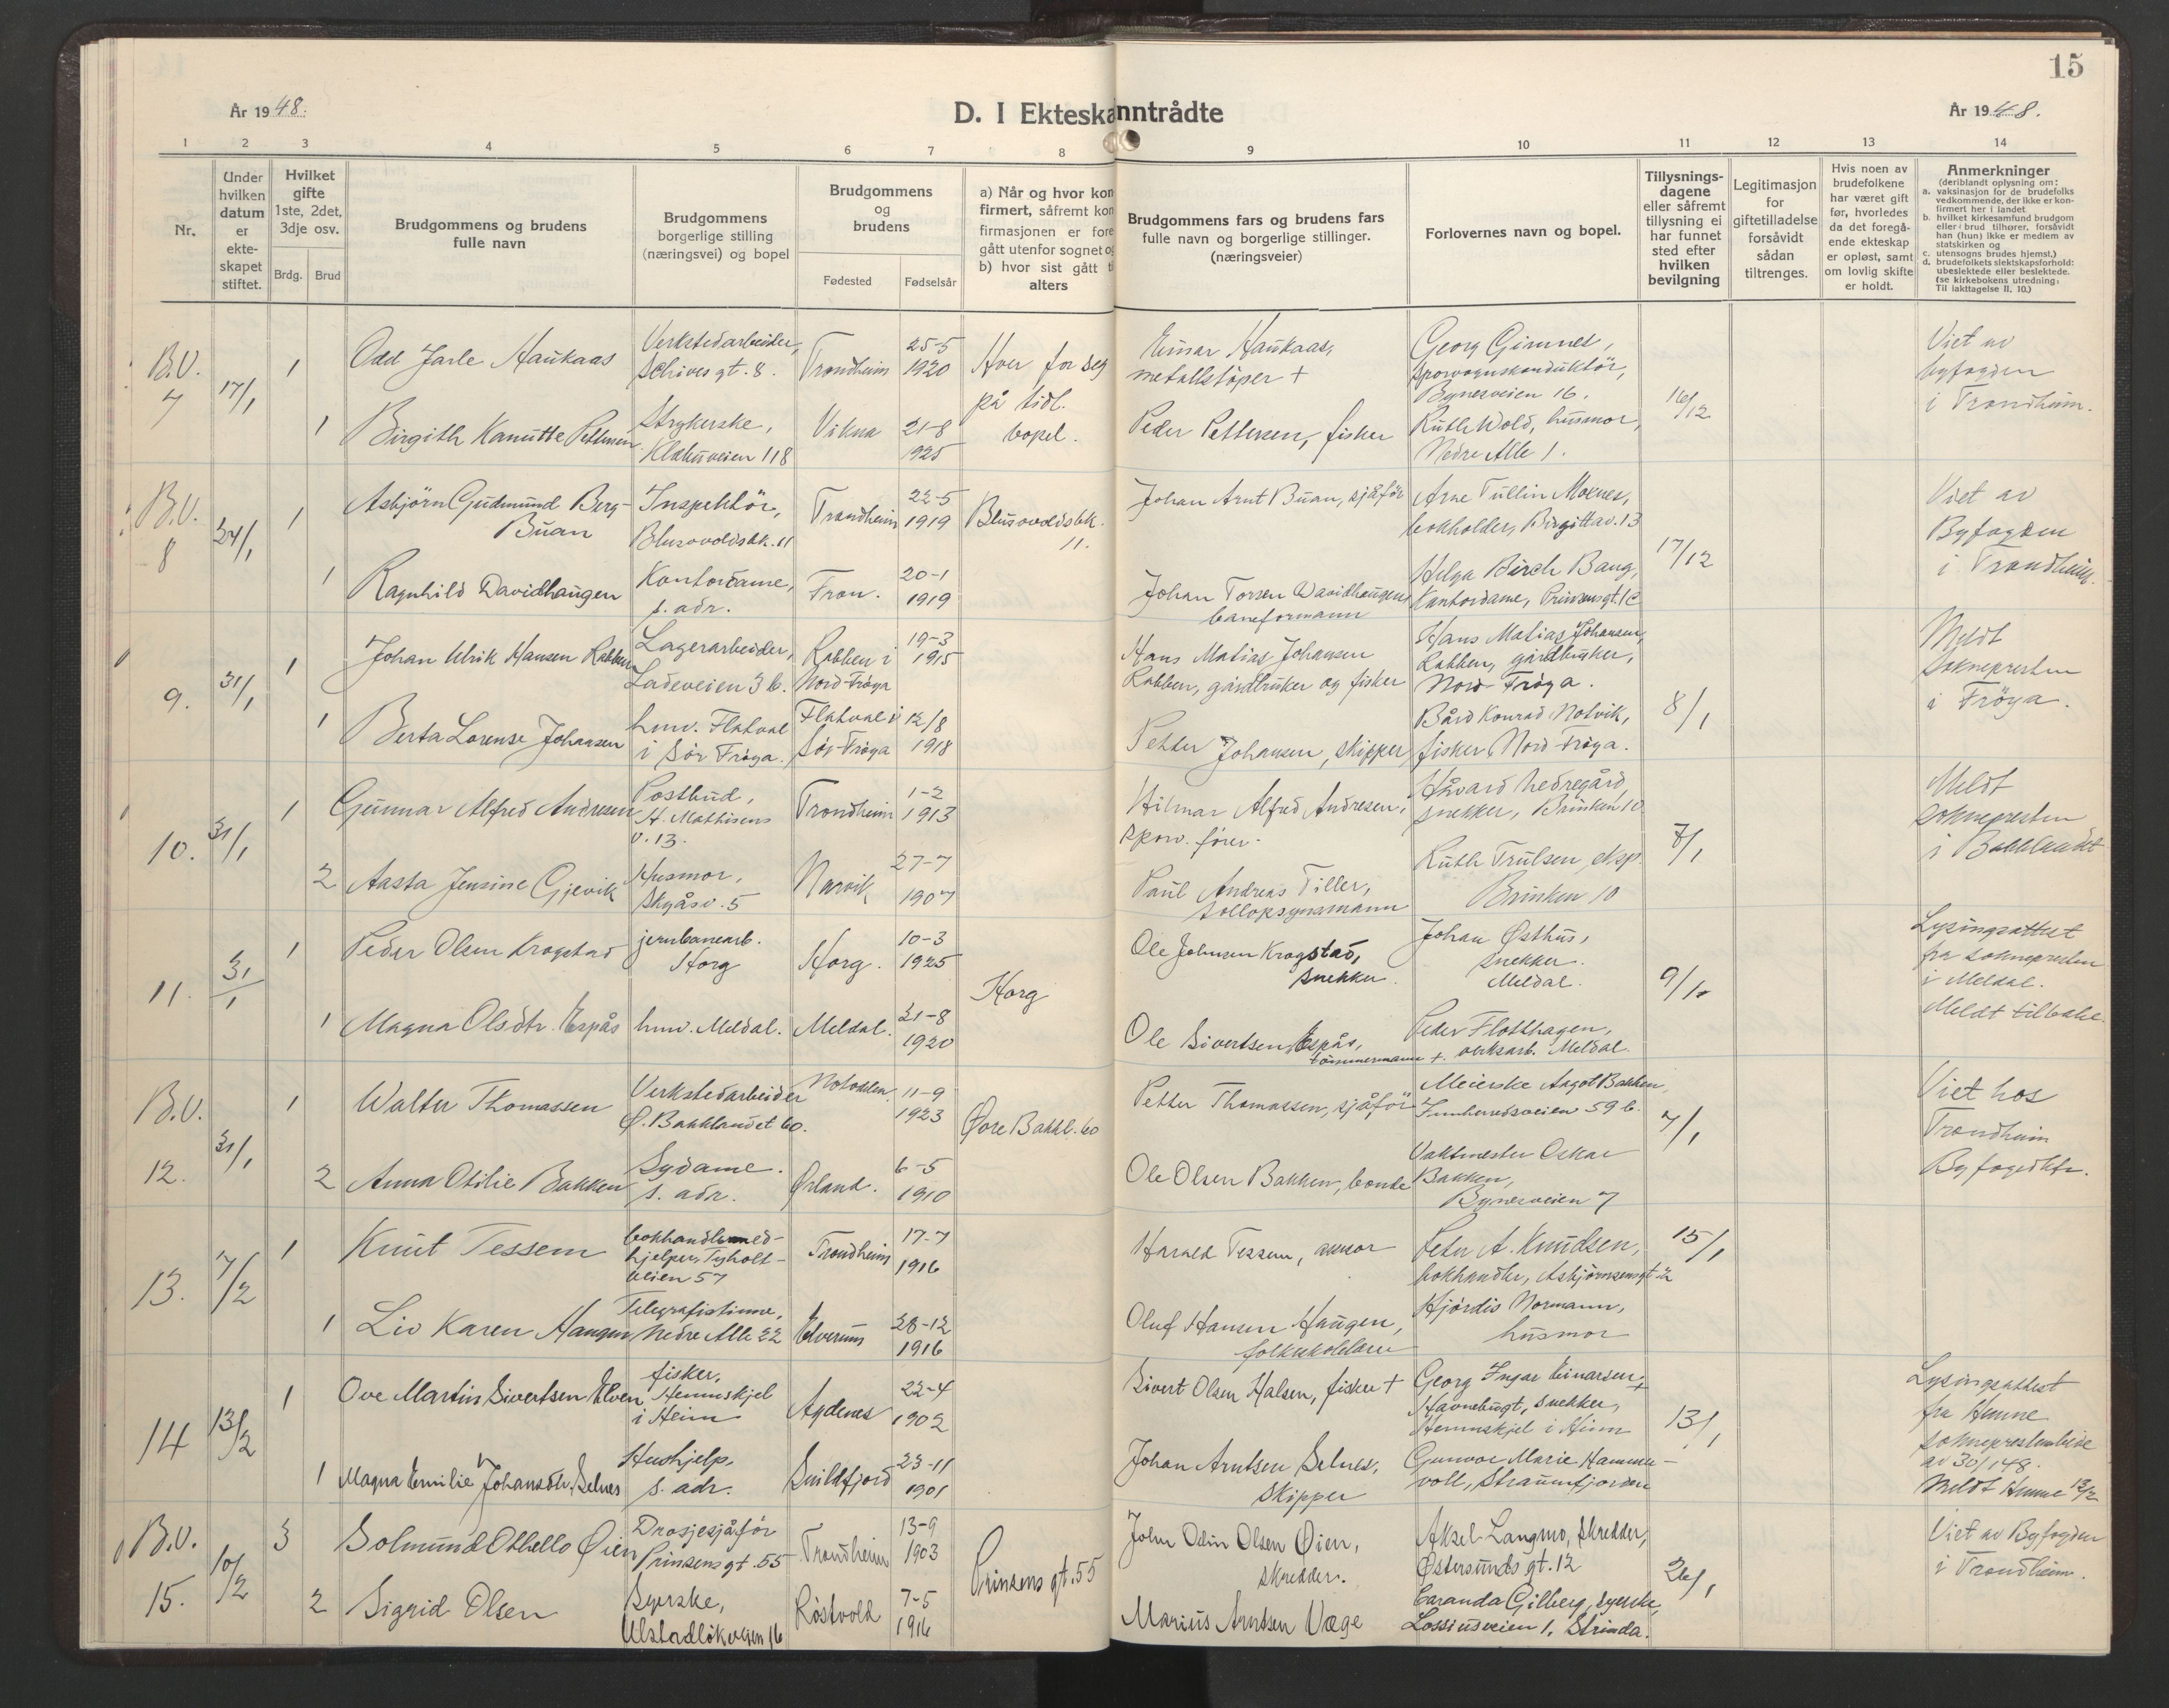 15
År 1948.
D. I Ekteskanntrådte
År 1948.
1 2 3 4 5 6 7 8 9 10 11 12 13 14
Nr.
Under
hvilken
datum
er
ekte-
skapet
stiftet.
Hvilket
gifte
1ste, 2det,
3dje osv.
Brdg. Brud
Brudgommens og brudens
fulle navn
Brudgommens
borgerlige stilling
(næringsvei) og bopel
Brudgommens
og
brudens
Fødested Fødselsår
a) Når og hvor kon
firmert, såfremt kon
firmasjonen er fore
gått utenfor sognet og
b) hvor sist gått t
alters
Brudgommens fars og brudens fars
fulle navn og borgerlige stillinger.
(næringsveier)
Forlovernes navn og bopel.
Tillysnings-
dagene
eller såfremt
tillysning ei
har funnet
sted efter
hvilken
bevilgning
Legitimasjon
for
giftetilladelse
forsåvidt
sådan
tiltrenges.
Hvis noen av
brudefolkene
har været gift
før, hvorledes
da det foregå-
ende ekteskap
er opløst, samt
om lovlig skifte
er holdt.
Anmerkninger
(deriblandt oplysning om:
a. vaksinasjon for de brudefolks
vedkommende, der ikke er kon-
firmert her i landet
b. hvilket kirkesamfund brudgom
eller brud tilhører, forsåvidt
han (hun) ikke er medlem av
statskirken og
c. utensogns brudes hjemst.)
d. brudefolkets slektskapsforhold:
ubeslektede eller beslektede.
(se kirkebokens utredning:
Til iakttagelse II. 10.)
B.V.
7
17/1
1
Odd Jarle Haukaas
Verkstedarbeider,
Schives gt. 8.
Trondheim
25-5
1920
Hver for seg
på tidl.
bopel.
Einar Haukaas,
metallstøper +
Georg Gimnes,
sporvognskonduktör,
Bynesveien 16.
16/12
Viet av
byfogden
i Trondheim.
1
Birgith Kanutte Pettersen
Strykerske,
Klæbuveien 118
Vikna
21-8
1925
Peder Pettersen, fisker
Ruth Wold, husmor,
Nedre Alle 1.
B.V.
8
24/1
1
Asbjörn Gudmund Berg-
Buan
Inspektör,
Blusuvoldsbk. 11
Trondheim
22-5
1919
Blusuvoldsbk.
11.
Johan Arnt Buan, sjåför
Arne Tullin Moknes,
bokholder, Birgittav. 13
17/12
Viet av
Byfogden
i Trondheim.
1
Ragnhild Davidhaugen
Kontordame,
s. adr.
Fron.
20-1
1919
Johan Torsen Davidhaugen
baneformann
Helga Birch Bang,
Kontordame, Prinsensgt. 1c
9.
31/1
1
Johan Ulrik Hansen Rabben
Lagerarbeider,
Ladeveien 3 b.
Rabben i
Nord-Fröya
19-3
1915
Hans Matias Johansen
Rabben, gårdbruker og fisker
Hans Matias Johansen,
Rabben, gårdbruker,
Nord-Fröya.
8/1
Meldt
soknepresten
i Fröya.
1
Berta Lorense Johansen
hmv. Flatval
i Sör Fröya.
Flatval i
Sör-Fröya
12/8
1918
Petter Johansen, skipper
Bård Konrad Notvik,
fisker Nord Fröya.
10.
31/1
1
Gunnar Alfred Andresen
Postbud,
H. Mathisens
v. 13.
Trondheim
1-2
1913
Hilmar Alfred Andresen,
sporv. fører.
Håvard Nedregård
snekker, Brinken 10
8/1
Meldt
soknepresten
i Bakklandet
2
Aasta Jensine Gjevik
Husmor,
Skyåsv. 5
Narvik
27-7
1907
Paul Andreas Tiller,
tollopsynsmann
Ruth Trulsen, eksp.
Brinken 10
11.
31/1
1
Peder Olsen Krogstad
jernbanearb.
Horg
Horg.
10-3
1925
Horg
Ole Johnsen Krogstad,
snekker
Johan Østhus,
snekker.
Meldal.
9/10
Lysingsattest
fra soknepresten
i Meldal.
Meldt tilbake
1
Magna Olsdtr. Espås
hmv. Meldal.
Meldal.
21-8
1920
Ole Sivertsen Espås,
tömmermann +.
Peder Flotthagen,
verksarb. Meldal.
B.V.
12.
31/1
1
Walter Thomassen
Verkstedarbeider
Ø. Bakklandet 60.
Notodden.
11-9
1923
Øvre Bakkl. 60
Petter Thomassen, sjåför
Meierske Aagot Bakken,
Innherredsveien 59 b.
7/1
Viet hos
Trondheim
Byfogdktr.
2
Anna Otilie Bakken
Sydame.
s. adr.
Ørland.
6-5
1910
Ole Olsen Bakken, bonde
Vaktmester Oskar
Bakken,
Bynesveien 7
13.
7/2
1
Knut Tessem
bokhandlermed-
hjelper, Tyholt-
veien 57
Trondheim
17-7
1916
Harald Tessem, revisor
Peter A. Knudsen,
bokhandler, Asbjörnsensgt
15/1
1
Liv Karen Haugen
Telegrafistinne,
Nedre Alle 22
Elverum
28-12
1916
Oluf Hansen Haugen,
folkeskolelærer
Hjördis Normann,
husmor
14
13/2
1
Ove Martin Sivertsen Elven
fisker,
Hemnskjel
i Heim
Agdenes
22-4
1902
Sivert Olsen Halsen, fisker +
Georg Ingar Einarsen,
Havnebugt, snekker,
Hemnskjel i Heim
13/1
Lysingsattest
fra Hemne
sokneprestembede
av 30/1 48.
Meldt Hemne 13/2
1
Magna Emilie Johansdtr. Selnes
Hushjelp,
s. adr.
Snillfjord
23-11
1901
Johan Arntsen Selnes,
skipper
Gunvor Marie Hammer-
voll, Straumfjorden
B.V.
15.
10/2
3
Solmund Othello Øien
Drosjesjåför
Prinsens gt. 55
Trondheim
13-9
1903
Prinsens gt. 55
John Odin Olsen Øien,
skredder.
Aksel Langmo, skredder,
Østersunds gt. 12
26/1
Viet av Byfogden
i Trondheim.
2
Sigrid Olsen
Syerske,
Ulstadlökvegen 16
Röstvold
7-5
1916
Marius Arntsen Væge
Caranda Gilberg, syerske,
Lossiusveien 1, Strinda.